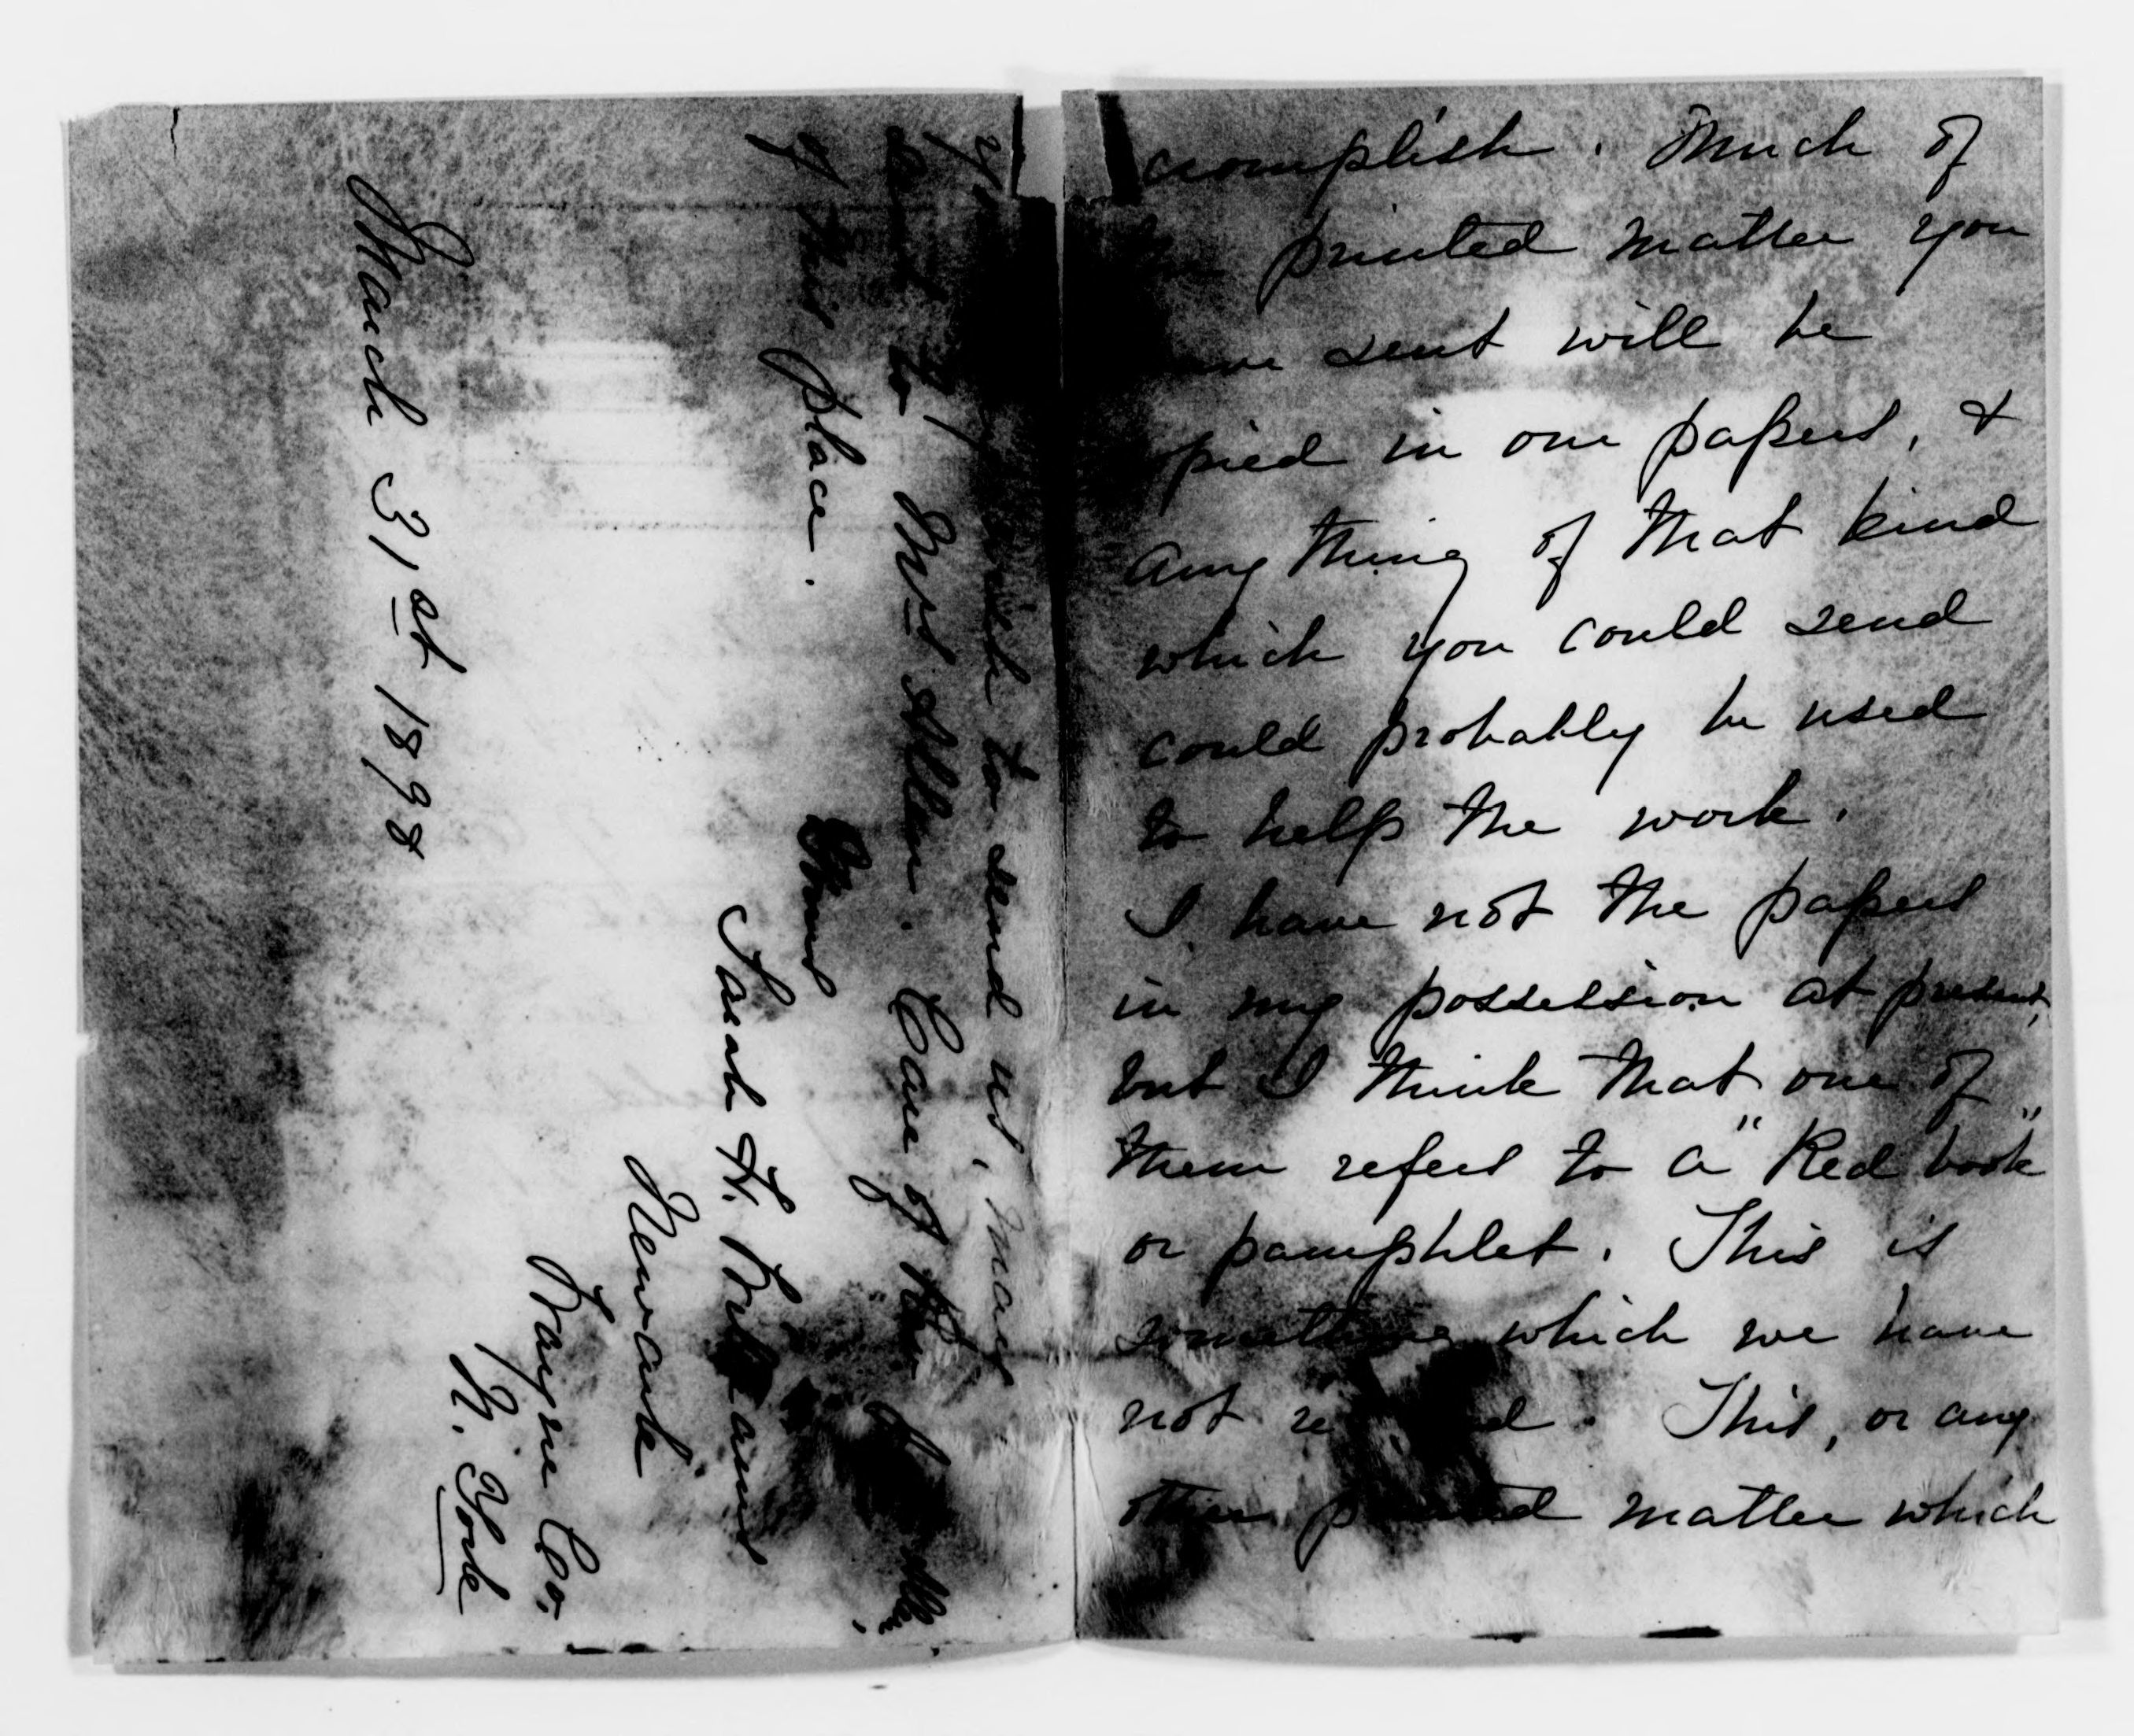 accomplish. Much of
printed matter you
sent will be
pied in our papers, &
any thing of that kind
which you could send
could probably be used
to help the work.
I have not the papers
in my possession at present,
but I think that one of
them refers to a "Red book"
or pamphlet. This is
something which we have
not. This, or any
other printed matter which
wish to send us, may
to Mrs Allen. Care of
of this place.
Yours
Sarah H.
Newark
Wayne Co.
N. York
March 31st 1898